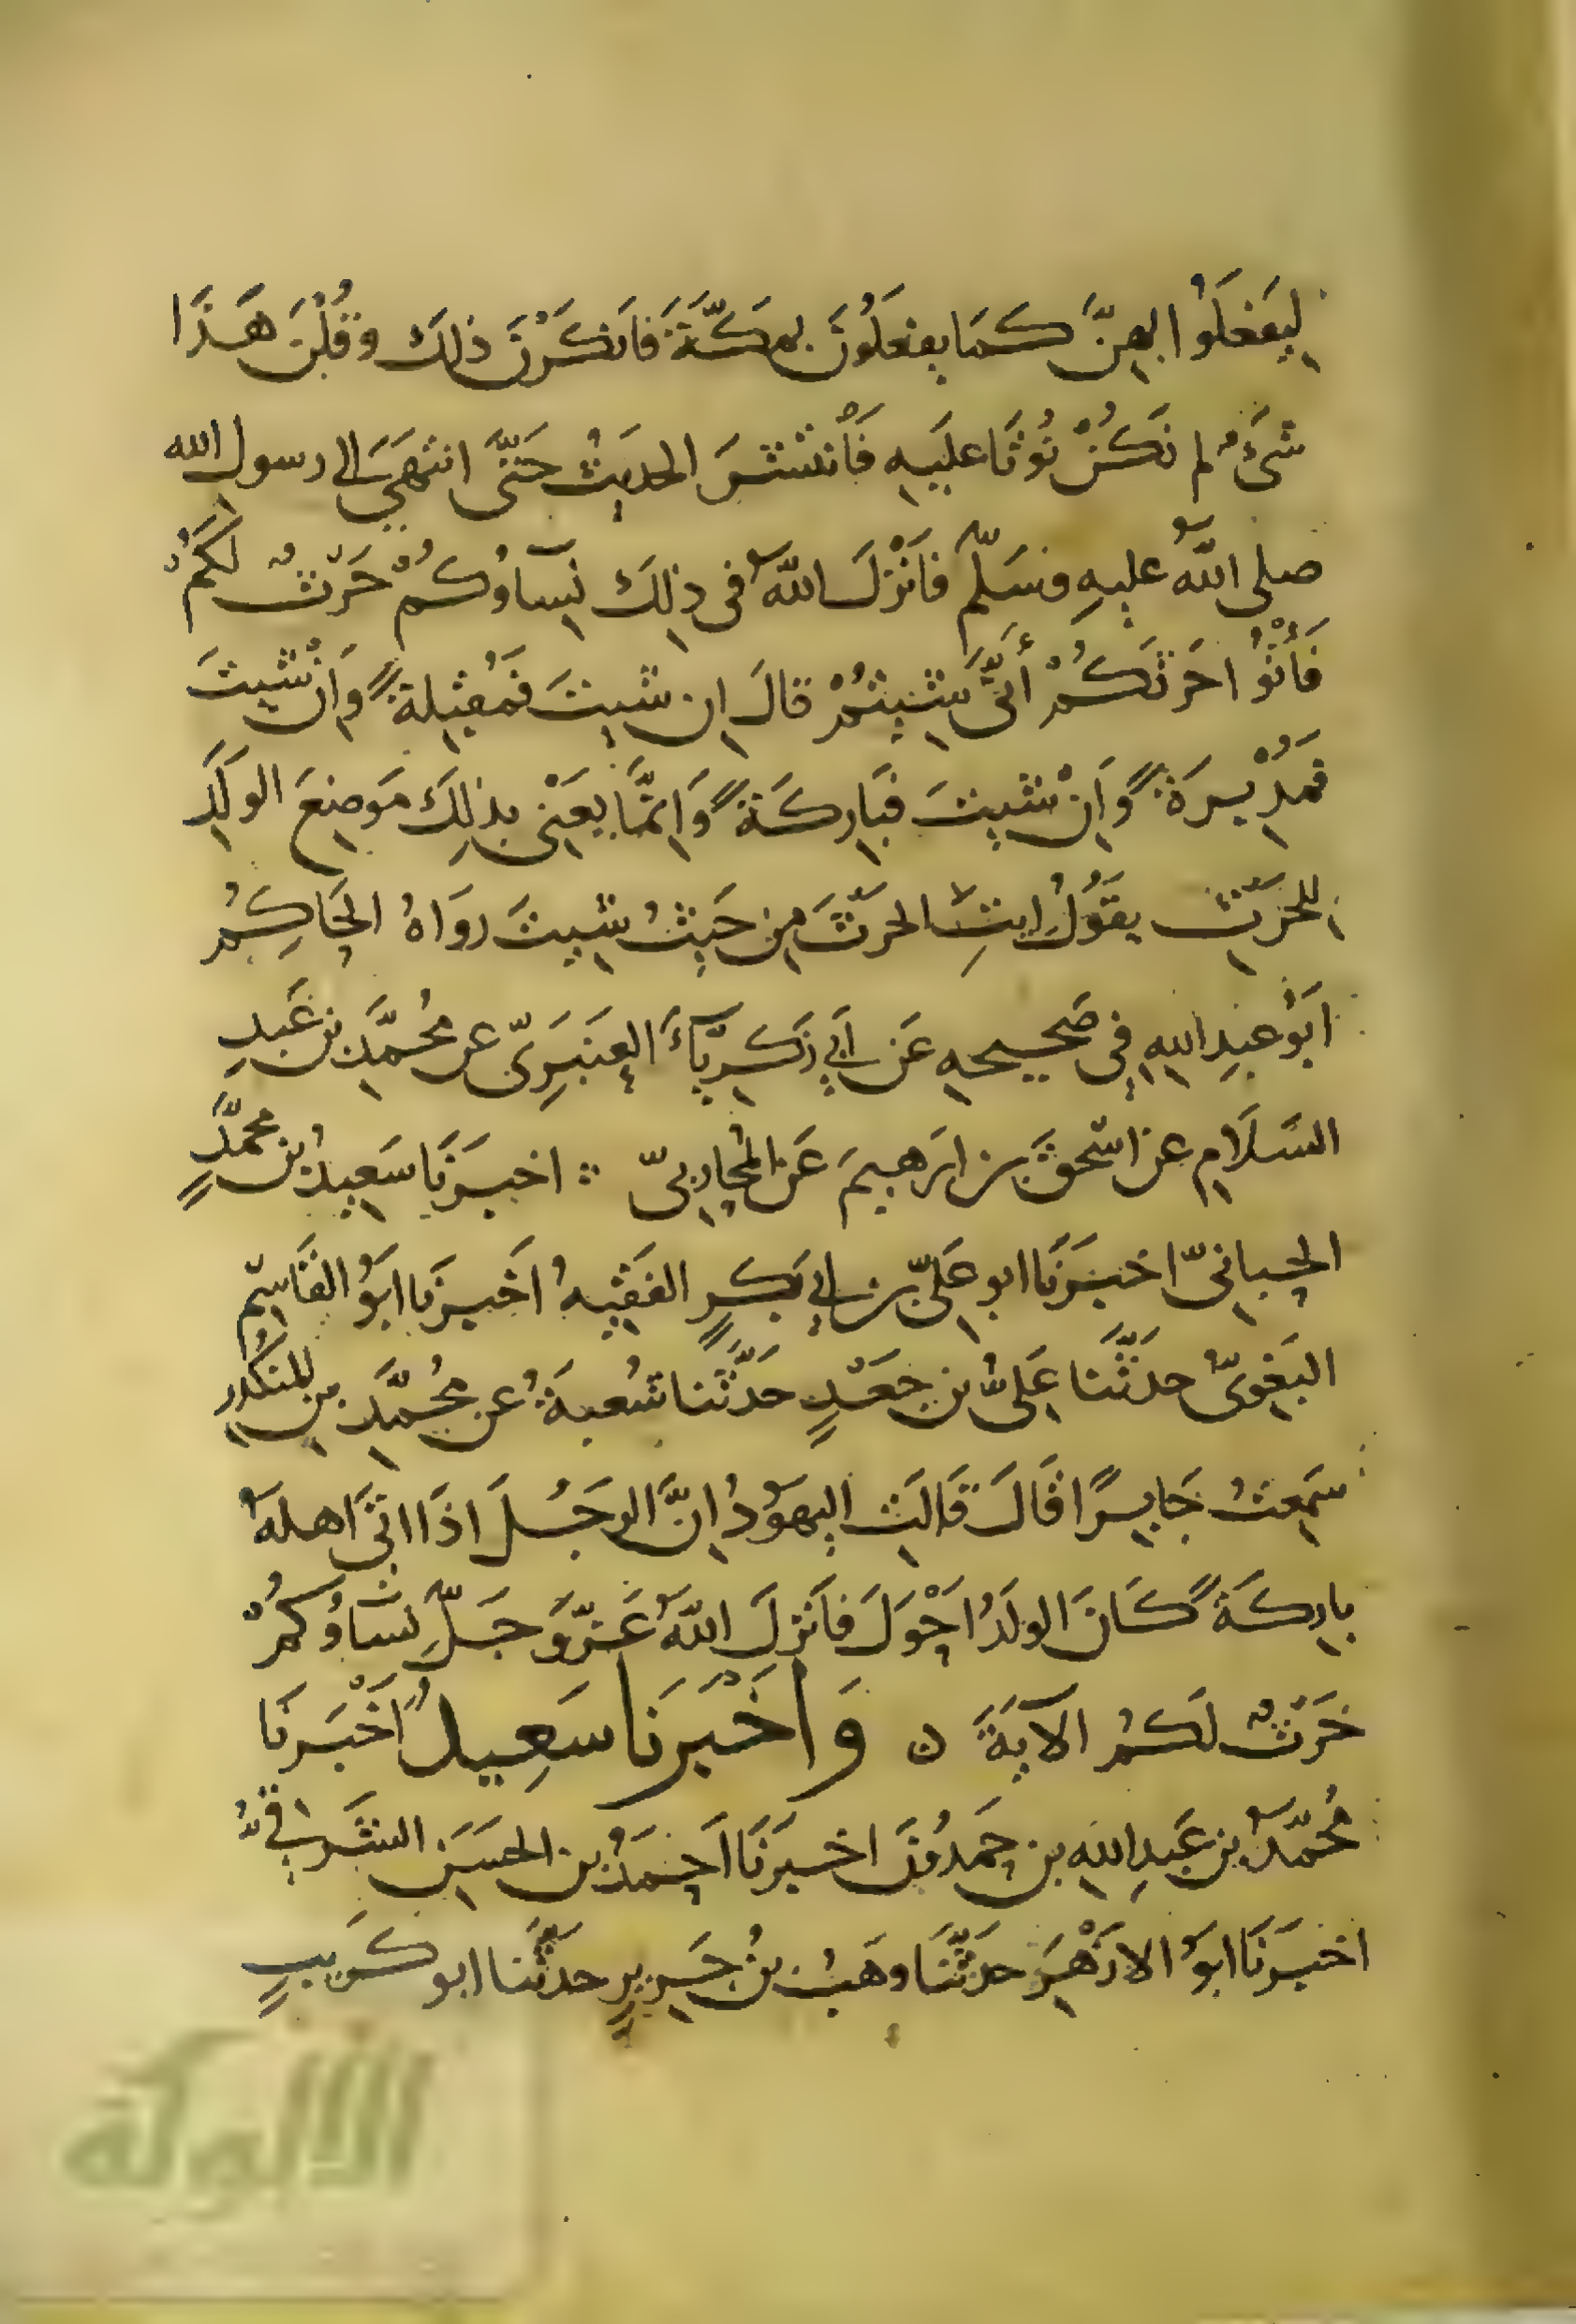 ليَفعَلُوا بهِنَّ كَمَا يفعَلُونَ بمكَّةَ فَانكَرْنَ ذلكَ وقُلْنَ هَذَا
شَىءٌ لم نَكُنْ نُوْتَا عليَهِ فَأنتشَرَ الحديَثُ حَتَّى انتهَى الى رسول الله
صلى اللهُ عليهِ وسَلّم فَانَزْلَ اللهُ فى ذلِكَ نِسَاوُكُمْ حَرْثٌ لَكُمْ
فَأتُوْا حَرثَكُمْ أَنَّى شئِيتُمْ قالَ اِن شيتَ فمُقبِلةً وَاِنْ شِيتَ
فمُدْبِرَةً وَاِنْ شيِتَ فبَارِكَةً وَاِنمَّا يَعَنْى بِذلِكَ مَوضِعَ الولَدِ
للحَرْثِ يقَوُلُ ايتِ الحرْثَ مِن حَيثُ شِيتَ روَاهُ الحَاكِمُ
ابَوُ عبدِ اللهِ فِى صَحيحِه عَن اَبِي زكَرِيَّآءَ العَنبَرِىّ عن مُحمَّدِ بن عَبدِ
السَلَامِ عن اسْحٰقَ بن ابرَهِيمَ عَن المحُارِبىّ ؞ اخبرَنَا سَعيِدُ بن محمَّدٍ
الحِيانىّ اخبَرَنَا ابو عَلىّ بن ابي بَكرٍ الفَقيِهُ اَخَبرنَا ابَوُ القَاسِم
البَغَوِىّ حدَثَّنَا عَلِىُّ بن جَعْدٍ حَدَّثَنا شُعبةُ عن مُحمَّدِ بنِ المنكَدرِ
سَمِعتُ جَابِرًا قَالَ قَالَتِ اليهَوُدُ اِنَّ الرجُلَ اذَا اتَى اَهلَهُ
بارِكَةً كَانَ الولَدُ اَحْوَلَ فَانَزلَ اللهُ عَزّ وَجَلّ نسَاوُكمُ
حَرْثٌ لكُم الآيةَ ن وَاَخْبَرنَا سَعِيدٌ اَخْبَرنَا
مُحمّدُ بن عَبدِ الله بن حَمدُونَ اخبَرنَا اَحمَدُ بن الحسَن الشَرقيُّ
اخبَرنَا ابَوُ الازْهَرِ حدَثَّنَا وهَبُ بنُ جَرِيرٍ حدَثَّنا ابو كرَيبٍ
الألوكة